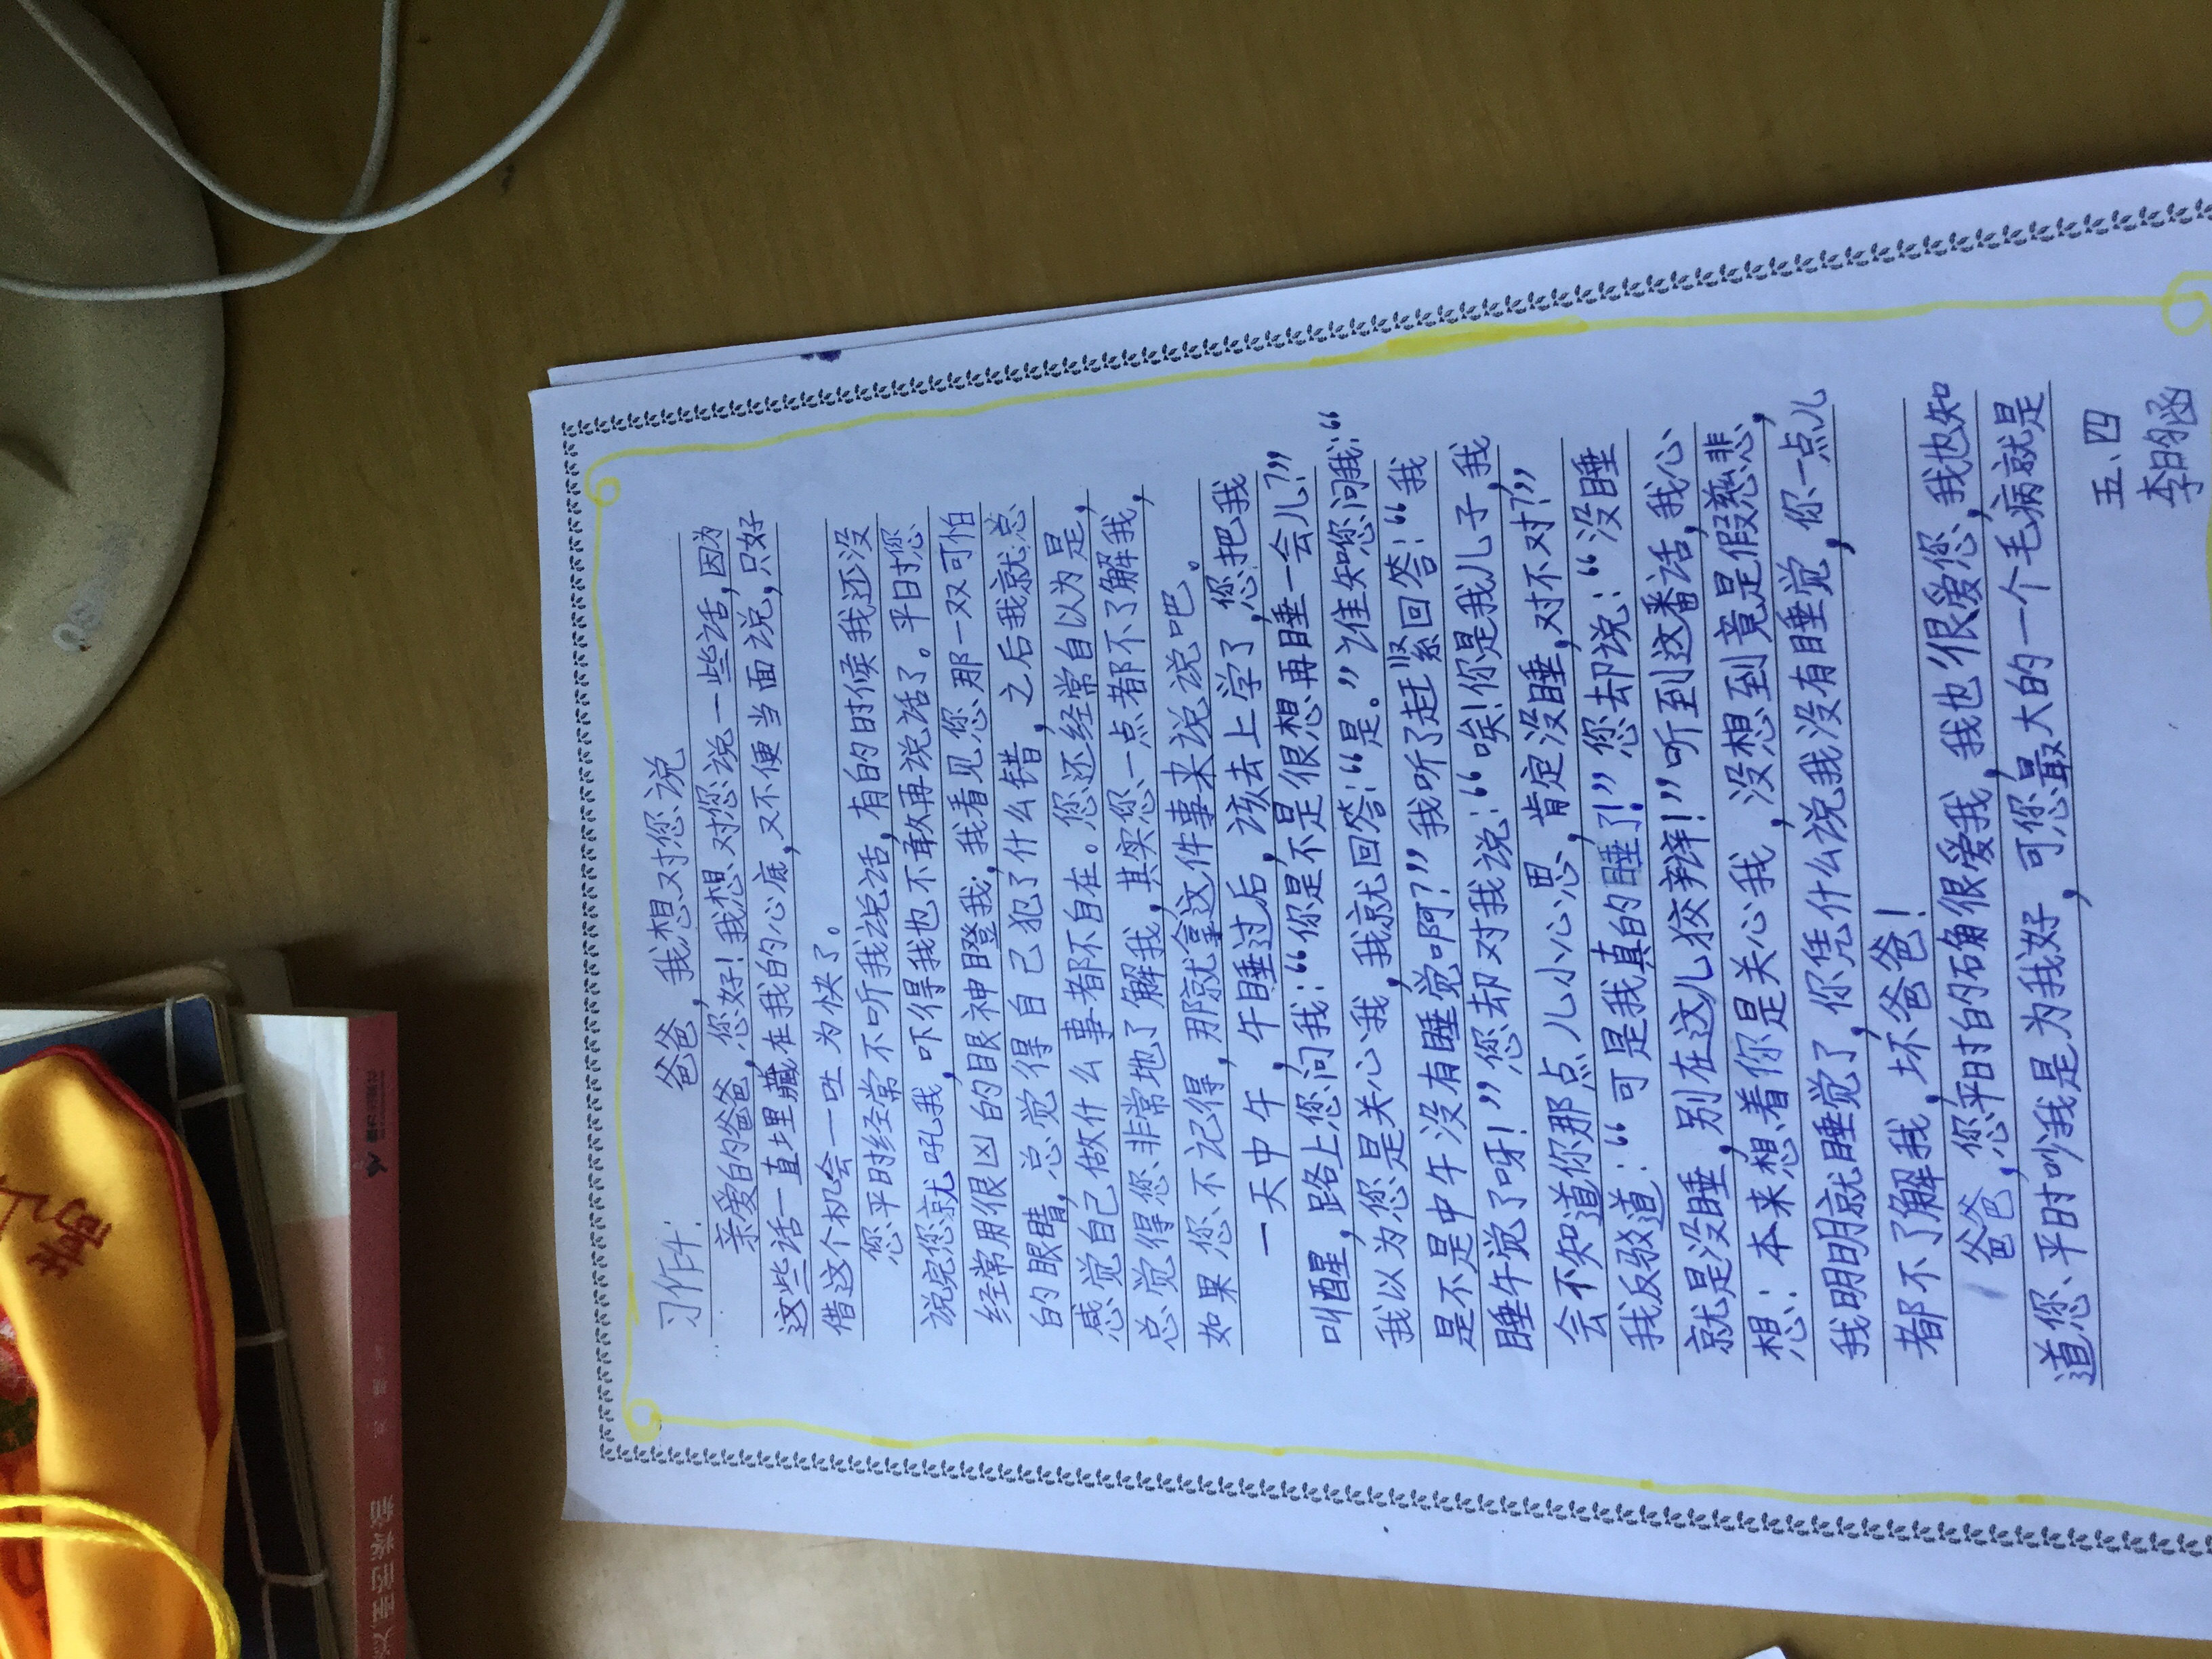 习作:
爸爸,我想对您说
亲爱的爸爸,您好!我想对您说一些话,因为
这些话一直埋藏在我的心底,又不便当面说,只好
借这个机会一吐为快了。
您平时经常不听我说话,有的时候我还没
说完您就吼我,吓得我也不敢再说话了。平时您
经常用很凶的眼神瞪我,我看见您那一双可怕
的眼睛,总觉得自己犯了什么错,之后我就总
感觉自己做什么事都不自在。您还经常自以为是,
总觉得您非常地了解我,其实您一点都不了解我,
如果您不记得,那就拿这件事来说说吧。
一天中午,午睡过后,该去上学了,您把我
叫醒,路上您问我:“你是不是很想再睡一会儿?”
我以为您是关心我,我就回答:“是。”谁知您问我:“
是不是中午没有睡觉啊?”我听了赶紧回答:“我
睡午觉了呀!”您却对我说:“唉!你是我儿子,我
会不知道你那点儿小心思,肯定没睡,对不对?”
我反驳道:“可是我真的睡了!”您却说:“没睡
就是没睡,别在这儿狡辩!”听到这番话,我心
想:本来想着你是关心我,没想到竟是假慈悲,
我明明就睡觉了,你凭什么说我没有睡觉,你一点儿
都不了解我,坏爸爸!
爸爸,您平时的确很爱我,我也很爱您,我也知
道您平时吵我是为我好,可您最大的一个毛病就是
五、四
李昀函